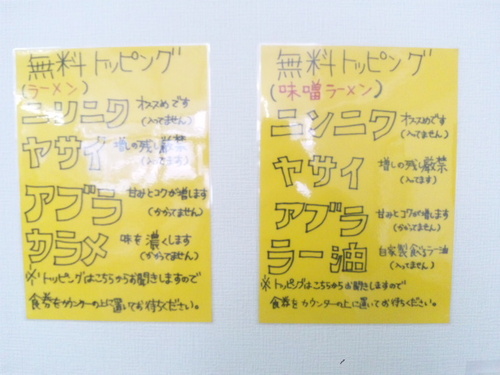 無料トッピング
(ラーメン)
ニンニク オススメです
(入ってません)
ヤサイ 増しの残し厳禁
(入ってます)
アブラ 甘みとコクが増します
(かかってません)
カラメ 味を濃くします
(かかってません)
※トッピングはこちらからお聞きしますので
食券をカウンターの上に置いてお待ちください。
無料トッピング
(味噌ラーメン)
ニンニク オススメです
(入ってません)
ヤサイ 増しの残し厳禁
(入ってます)
アブラ 甘みとコクが増します
(かかってません)
ラー油 自家製食べるラー油
(入ってません)
※トッピングはこちらからお聞きしますので
食券をカウンターの上に置いてお待ちください。